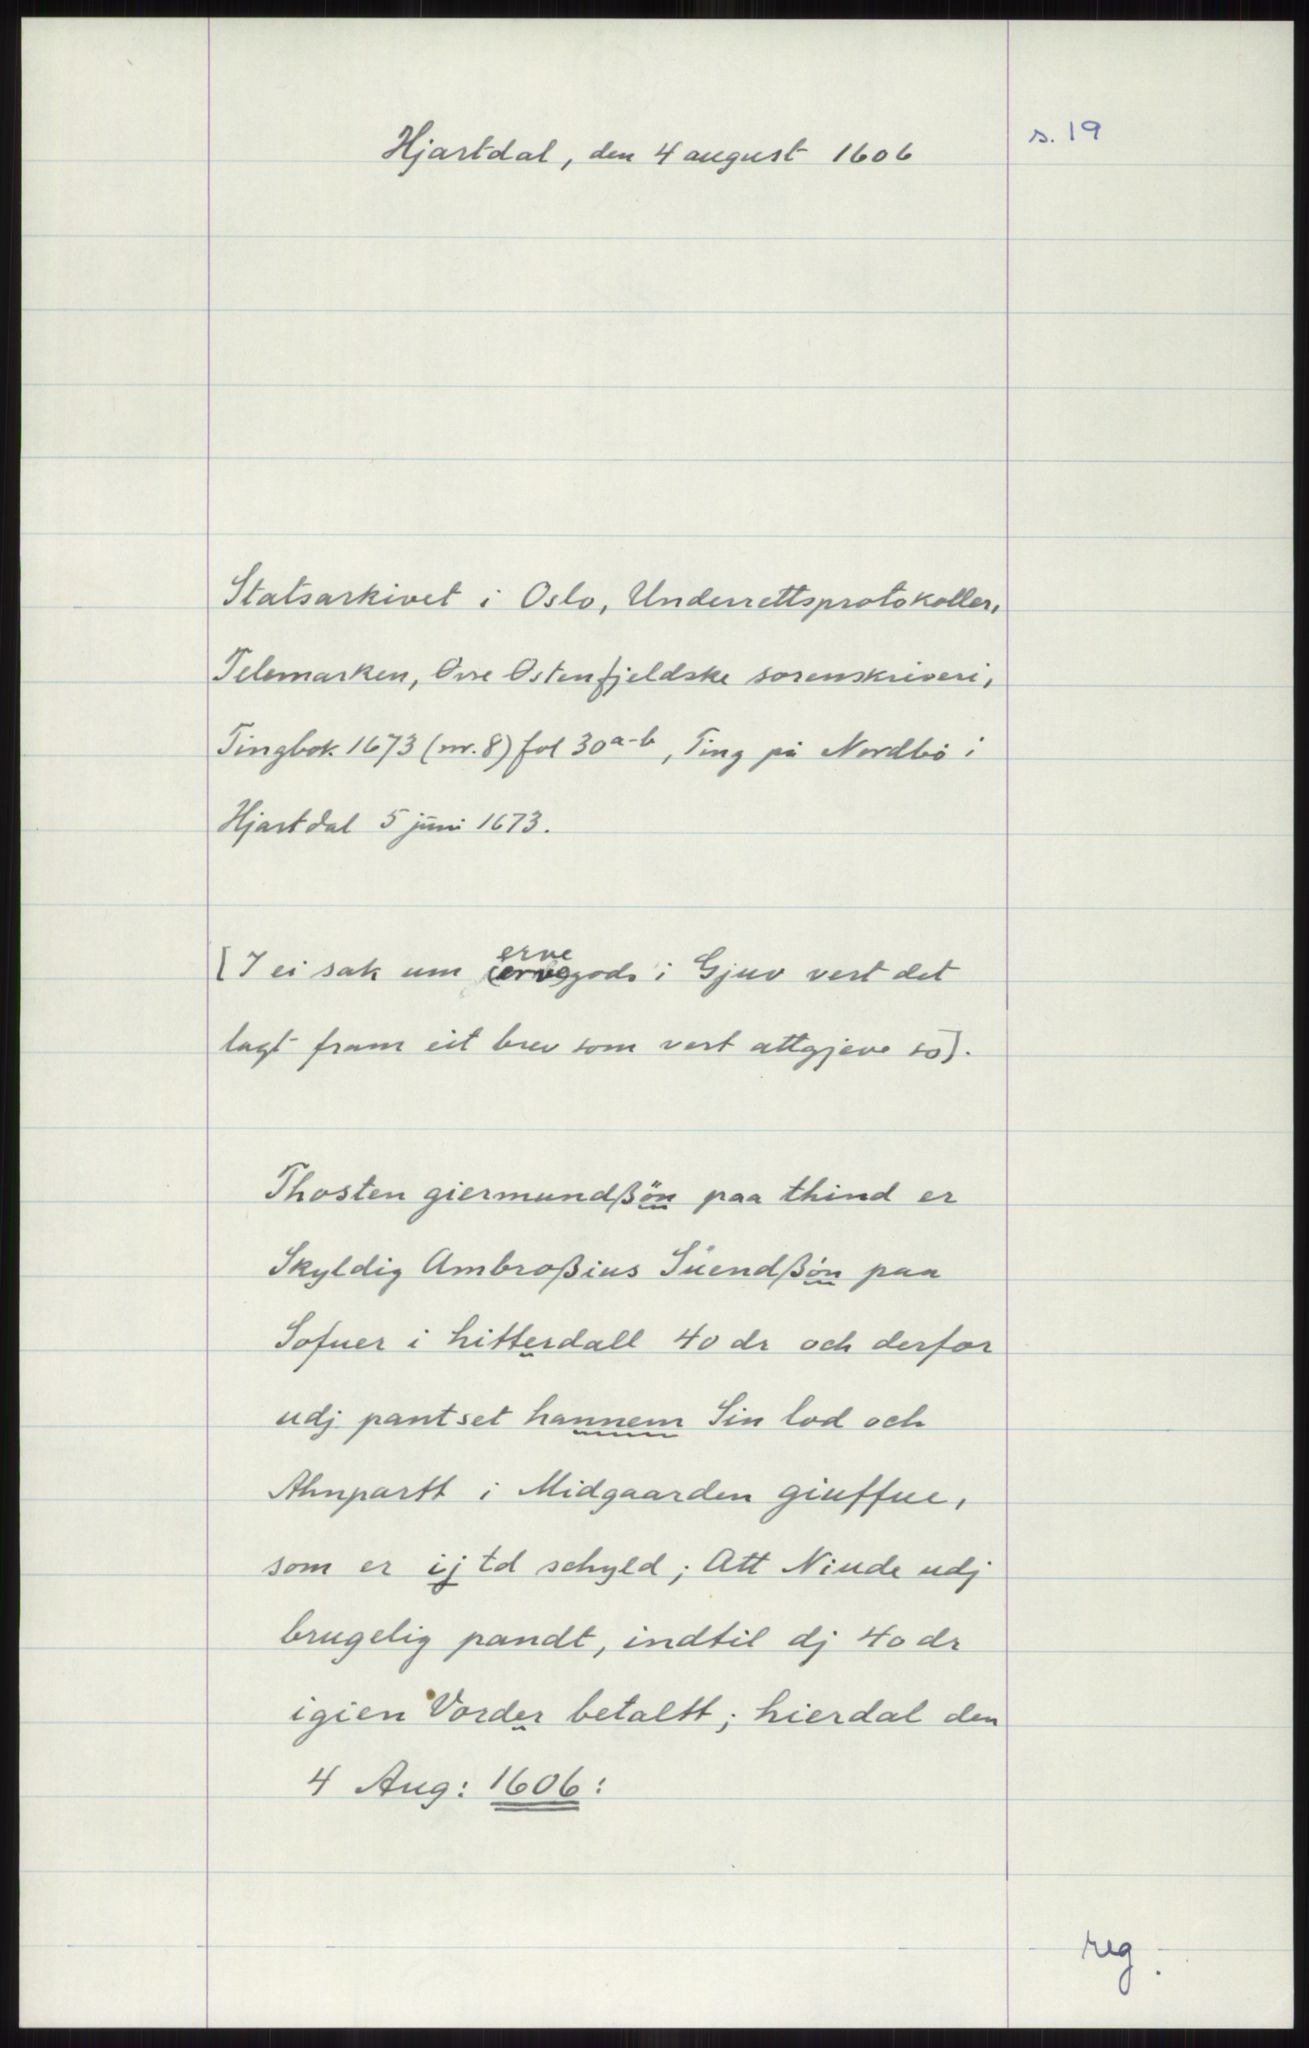 Hjartdal, den 4 august 1606
s. 19
Statsarkivet i Oslo, Underrettsprotokoller,
Telemarken, Øvre Østenfjeldske sorenskriveri,
Tingbok 1673 (nr. 8) fol 30a-b, Ting på Nordbø i
Hjartdal 5 juni 1673.
erve
[I ei sak um (erve)gods i Gjuv vert det
lagt fram eit brev som vert attgjeve so].
Thosten giermundßön paa thind er
Skyldig Ambroßius Süendßön paa
Sofuer i hitterdall 40 dr och derfor
udj pantset hannem Sin lod och
Ahnpartt i Midgaarden giuffue,
som er ij td schyld; Att Niude udj
brugelig pandt, indtil dj 40 dr
igien Vorder betaltt; hierdal den
4 Aug: 1606:
reg.